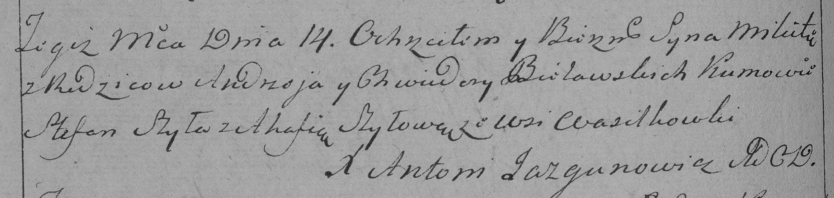 Tegiż Mca Dnia 14. Ochrzciłem y Bierzm Syna Mikitę
z Rodzicow Andrzeja y Chwiedory Bieławskich Kumowie
Stefan Szyła z Ahafią Szyłową ze wsi Wasilkowki
X Antoni Jazgunowicz